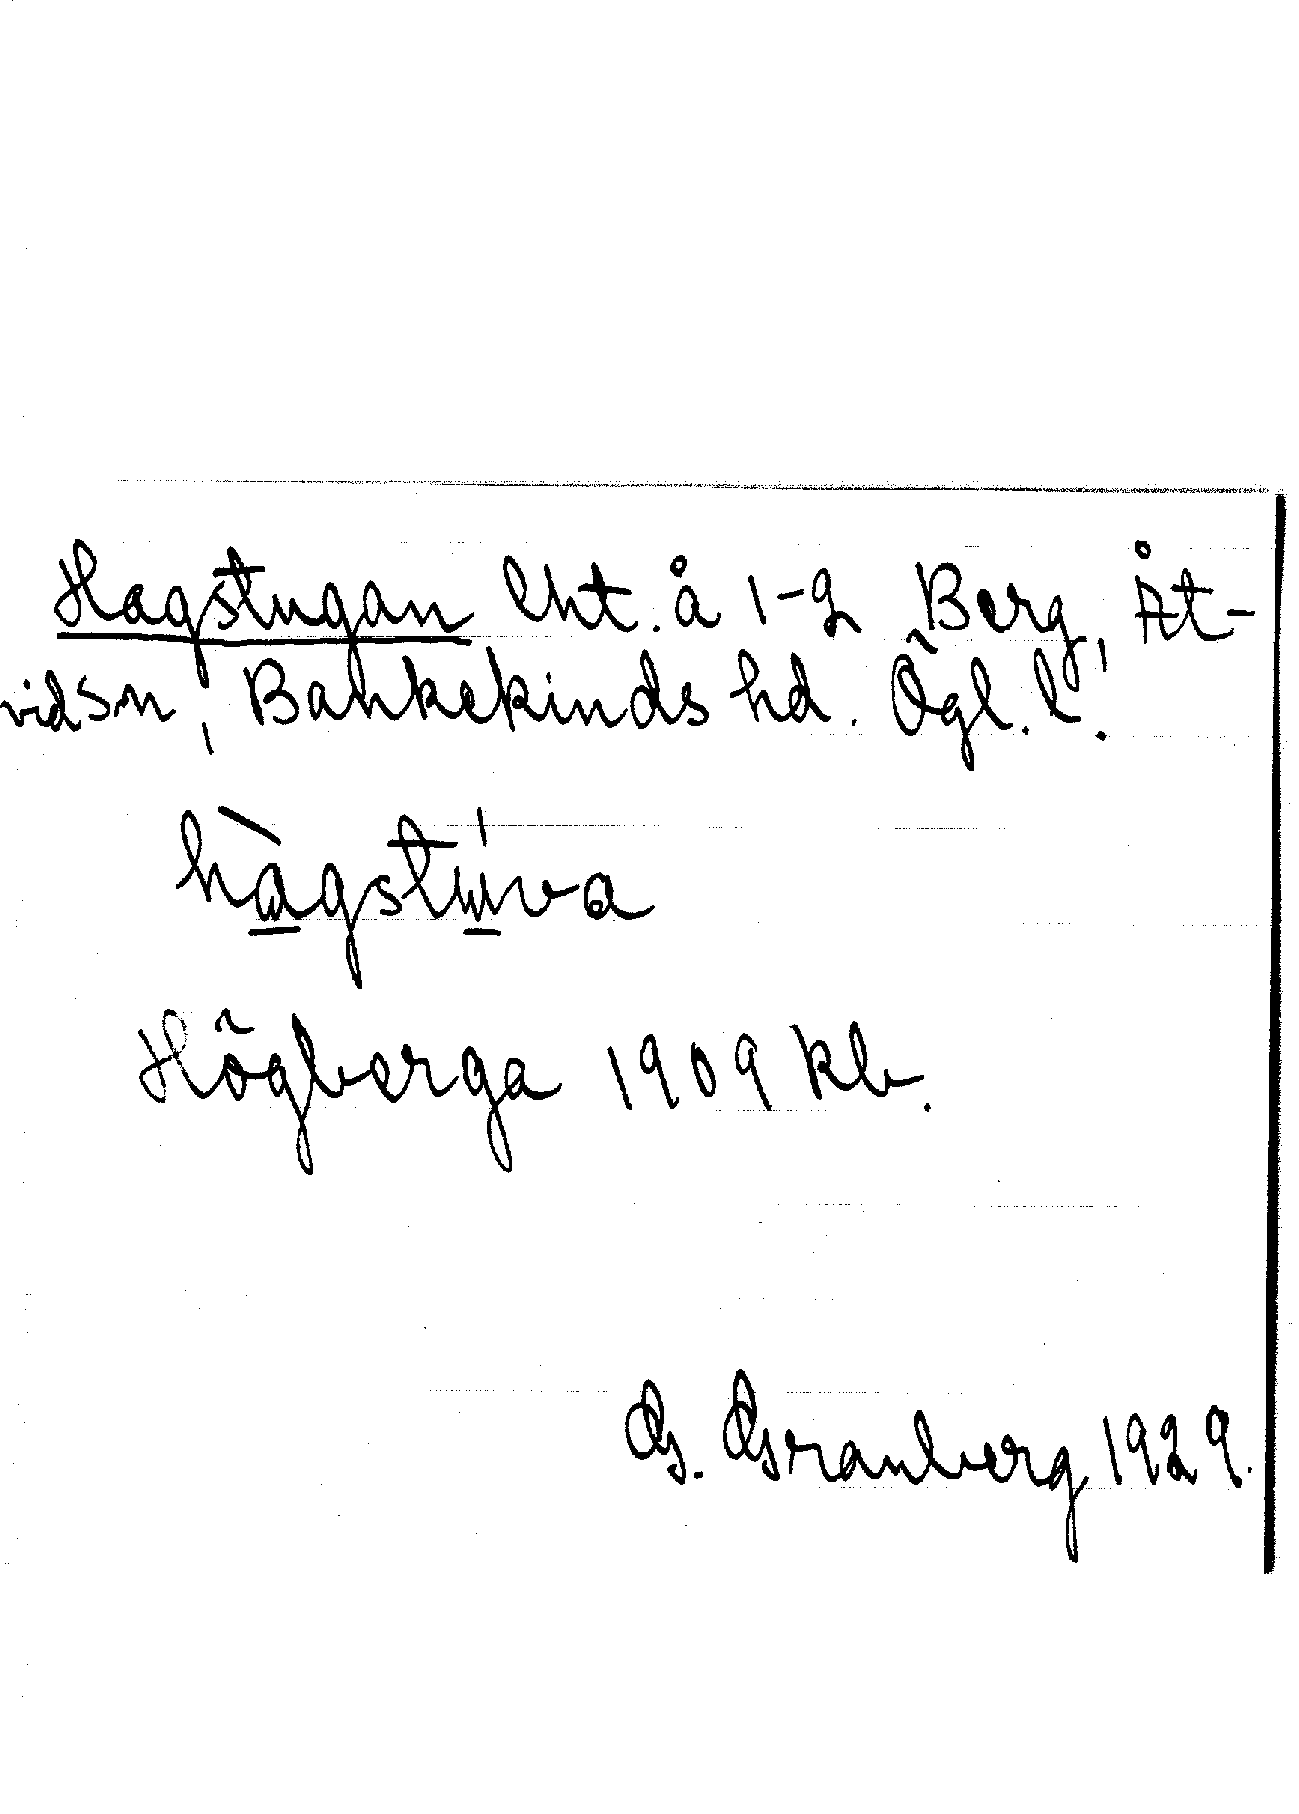 Hagstugan lht. å 1-2 Berg, Åt-
vids sn, Bankekinds hd. Ögl. l.
hàgstúva
Högberga 1909 kb.
G. Granberg 1929.